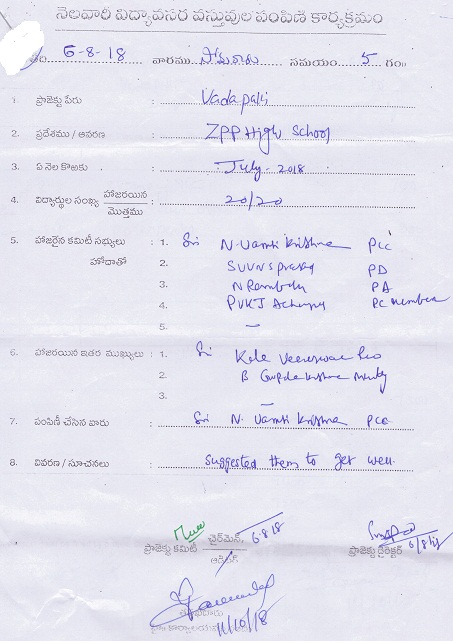 నెలవారీ విద్యావసర వస్తువుల పంపిణీ కార్యక్రమం
తేం 6-8-18 వారము సోమవారం సమయం 5 గం॥
1. ప్రాజెక్టు పేరు : Vadapalli
2. ప్రదేశము / ఆవరణ : ZPP High School
3. ఏ నెల కొఱకు : July - 2018
4. విద్యార్థుల సంఖ్య హాజరయిన / మొత్తము : 20/20
5. హాజరైన కమిటీ సభ్యులు : 1. Sri N. Vamsi Krishna PCC
హోదాతో 2. SUVNS Prasad PD
3. N Rambabu PA
4. PVKJ PC member
5. —
6. హాజరయిన ఇతర ముఖ్యులు : 1. Sri Veereswara Rao
2. B Krishna
3. —
7. పంపిణీ చేసిన వారు : Sri N. Vamsi Krishna PCC
8. వివరణ / సూచనలు : Suggested them to get well.
ప్రాజెక్టు కమిటీ ఛైర్మెన్, 6-8-18 ప్రాజెక్టు డైరెక్టర్ 6/8/18
ఆడిటర్
11/10/18